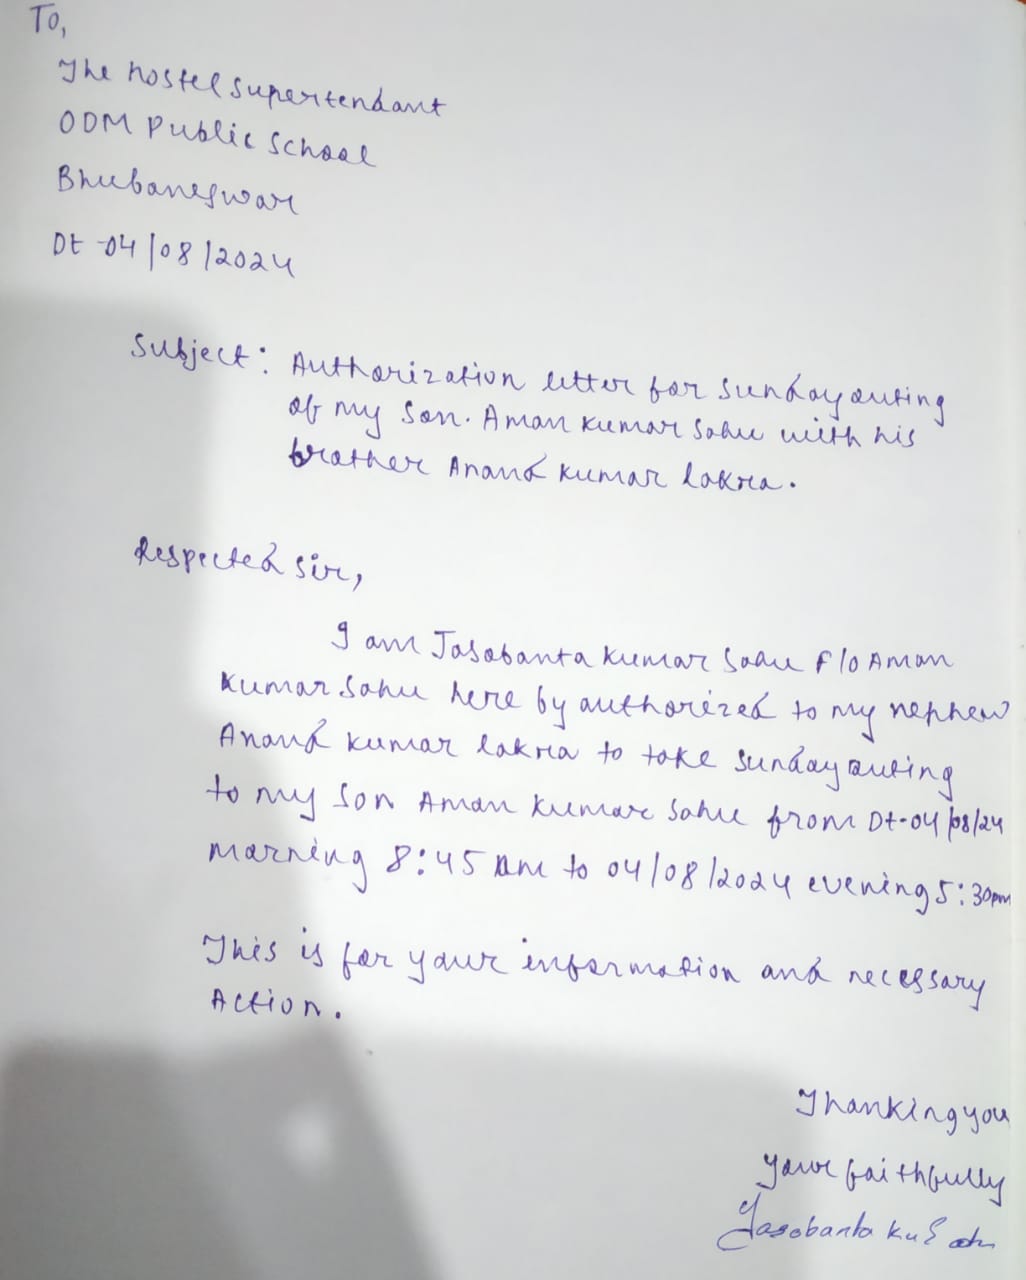 To,
The hostel supertendant
ODM Public School
Bhubaneswar
Dt -04/08/2024
Subject: Authorization letter for sunday outing
of my son. Aman Kumar Sahu with his
brother Anand Kumar lakra.
Respected Sir,
I am Jasobanta Kumar Sahu F/o Aman
Kumar Sahu here by authorized to my nephew
Anand Kumar lakra to take sunday outing
to my son Aman Kumar Sahu from Dt-04/08/24
marning 8:45 am to 04/08/2024 evening 5:30pm
This is for your information and necessary
Action.
Thanking you
your faithfully
Jasobanta Ku